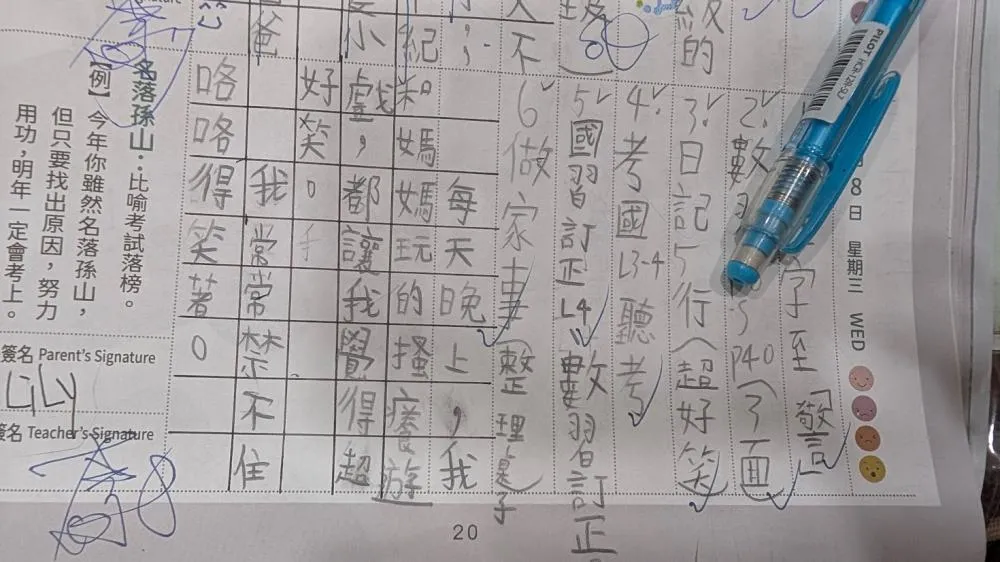 8日 星期三 WED
字至「敬言
2.數習
P40（3面）
3.日記5行（超好笑）
4.考國L3-4聽考
5.國習訂正L4、數習訂正
6.做家事（整理桌子）
級的
天不
每天晚上，我
紀和媽媽玩的搔癢遊
小戲，都讓我覺得超
好笑。
爸我常常禁不住
咯咯得笑著。
名落孫山：比喻考試落榜。
【例】今年你雖然名落孫山，
但只要找出原因，努力
用功，明年一定會考上。
簽名 Parent's Signature
Lily
簽名 Teacher's Signature
20
PILOT
HCR-12R-SL7